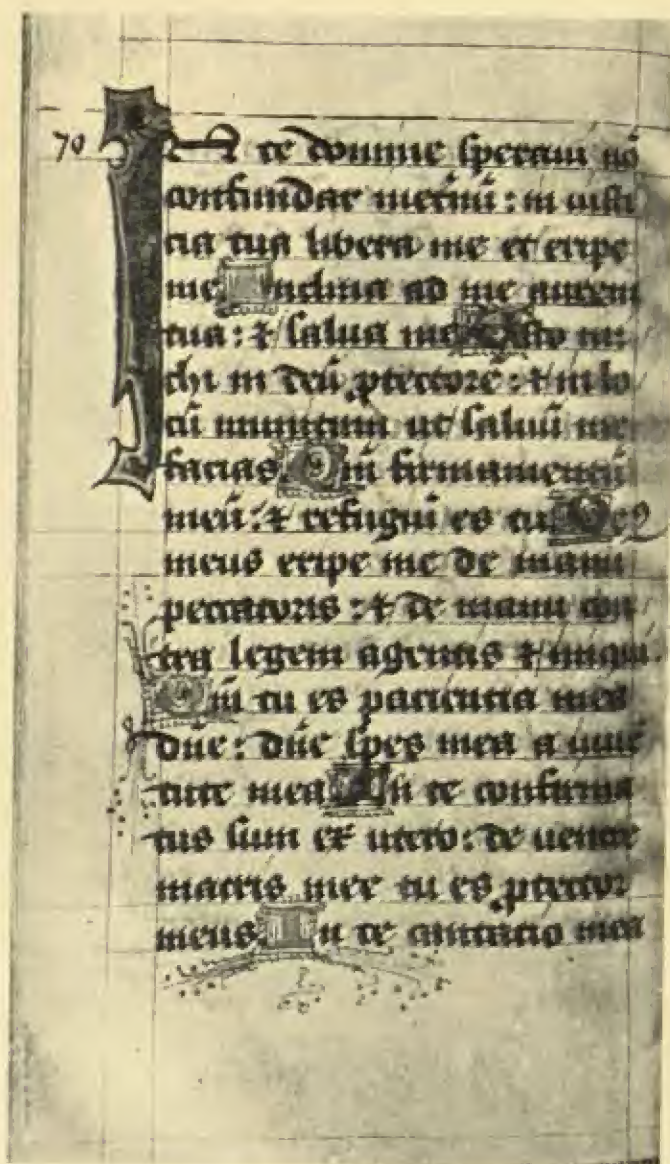 70
IN te domine speraui nō
confundar ineternū : in iusti
cia tua libera me et eripe
me Inclina ad me aurem
tuā : ⁊ salua me Esto mi
chi in deū ꝓtectorē : ⁊ in lo
cū munitum ut saluū me
facias Qm̄ firmamentū
meū : ⁊ refugiū es tu Deꝰ
meus eripe me de manu
peccatoris : ⁊ de manu con
tra legem agentis ⁊ iniqui
Qm̄ tu es paciencia mea
dn̄e : dn̄e spes mea a iuuē
tute mea In te confirma
tus sum ex utero : de uentre
matris mee tu es ꝓtector
meus In te cantatio mea